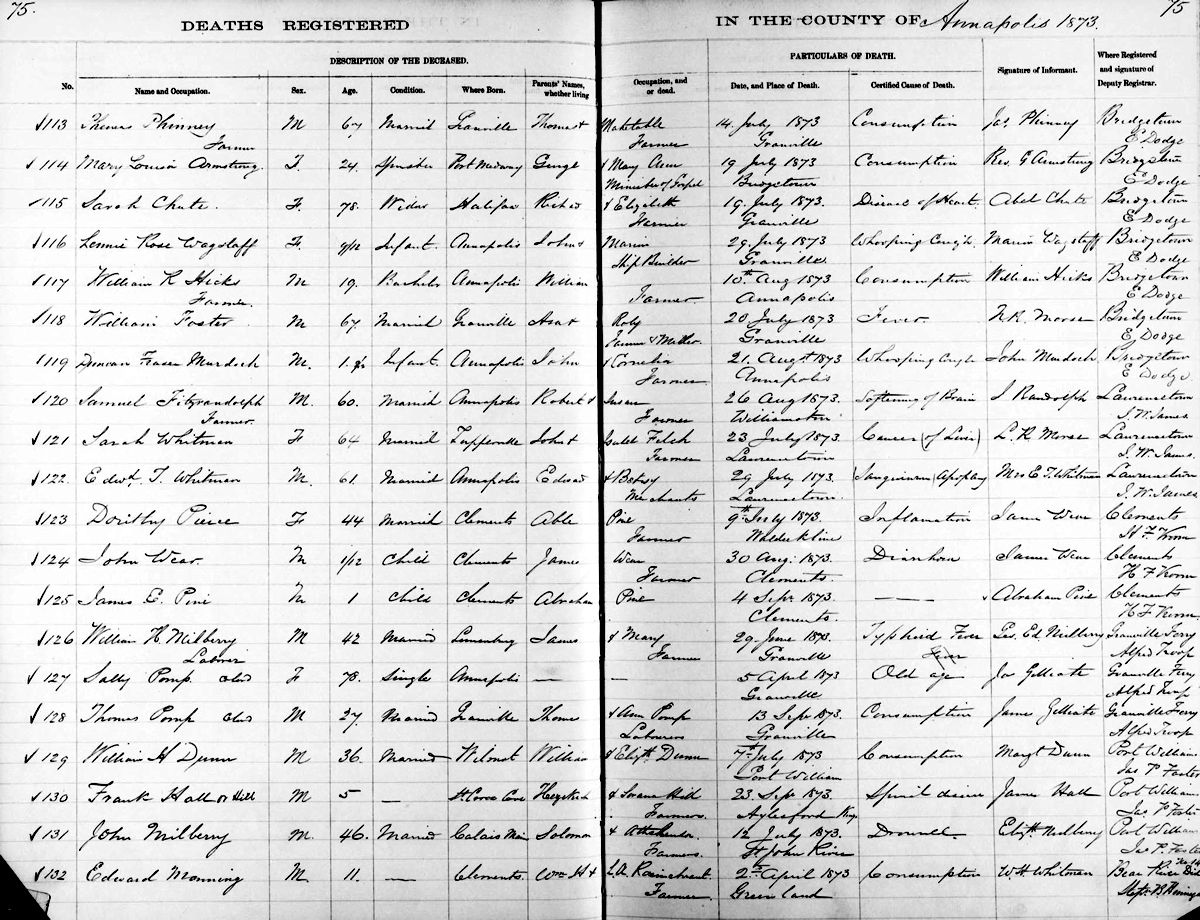 75. 75
DEATHS REGISTERED IN THE COUNTY OF Annapolis 1873.
DESCRIPTION OF THE DECEASED. PARTICULARS OF DEATH.
No. Name and Occupation. Sex. Age. Condition. Where Born. Parents' Names, whether living Occupation, and or dead. Date, and Place of Death. Certified Cause of Death. Signature of Informant. Where Registered and signature of Deputy Registrar.
113 Thomas Phinney M 67 Married Granville Thomas & Mehetable 14 July 1873 Consumption Jas Phinney Bridgetown
Farmer Farmer Granville E Dodge
114 Mary Louisa Armstrong F. 24. Spinster Port Medway George & Mary Ann 19 July 1873 Consumption Rev. G Armstrong Bridgetown
Minister of Gospel Bridgetown E Dodge
115 Sarah Chute. F. 78. Widow Halifax Richard & Elizabeth 19. July 1873. Disease of Heart. Abel Chute Bridgetown
Farmer Granville E Dodge
116 Lennie Rose Wagstaff F. 9/12 Infant. Annapolis John & Maria 29. July 1873 Whooping Cough. Maria Wagstaff Bridgetown
Ship Builder Granville E Dodge
117 William R Hicks M 19. Bachelor Annapolis William 10th Aug 1873 Consumption William Hicks Bridgetown
Farmer. Farmer Annapolis E Dodge
118 William Foster M 67 Married Granville Asa & Roby 20 July 1873 Fever. Bridgetown
Granville E Dodge
119 Fraser Murdoch M. Infant. Annapolis John & Cornelia 21. Augst 1873 Whooping Cough John Murdoch Bridgetown
Farmer Annapolis E Dodge.
120 Samuel Fitzrandolph M. 60. Married Annapolis Robert & Susan 26 Aug 1873. Softening of Brain Randolph Lawrencetown
Farmer. Farmer Williamston J. W. James
121 Sarah Whitman F 64 Married Tupperville John & Felch 23 July 1873. Cancer (of Liver) L. R Morse Lawrencetown
Farmer Lawrencetown J. W. James.
122 Edwd. T. Whitman M. 61. Married Annapolis Edward & Betsey 29 July 1873. Sanguineous Apoplexy Mrs E. T. Whitman Lawrencetown
Merchants Lawrencetown. J. W. James
123 Dorithy Pierce F 44 Married Clements Able Pine 9th July 1873. Inflamation James Wear Clements
Farmer Waldeck line
124 John Wear. M 1/12 Child Clements James Wear 30 Aug: 1873. Diarrhoea James Wear Clements
Farmer Clements.
125 James E. Pine M 1 Child Clements Abraham Pine 4 Sepr 1873. — Abraham Pine Clements
Clements.
126 William H. Milberry M 42 Married Lunenburg James & Mary 29. June 1873. Typhoid Fever Geo. Ed Milberry Granville Ferry
Laborer Farmer Granville Fever Alfred Troop
127 Sally Pomp cold F 78. Single Annapolis — — 5 April 1873 Old age Gilliatt Granville Ferry
Granville Alfd Troop
128 Thomas Pomp cold M 27 Married Granville Thomas & Ann Pomp 13 Sepr 1873. Consumption James Gilliatt Granville Ferry
Labourers Granville Alfred Troop
129 William H Dunn M 36. Married Wilmot William & Elizth Dunn 7th July 1873 Consumption Margt Dunn Port William
Port William Jas P Foster
130 Frank Hall or Hill M 5 — Hezekiah & Hill 23. Sepr 1873. Spinal disease James Hall Port William
Farmers. Aylesford Jas. P Foster
131 John Milberry M. 46. Married Calais Main Solomon & 12 July 1873. Drowned. Elizth Milberry Port William
Farmers. St John River Jas P. Foster
132 Edward Manning M. 11. — Clements. Wm H & 2nd April 1873 Consumption W. H Whitman Bear River
Farmer Greenland